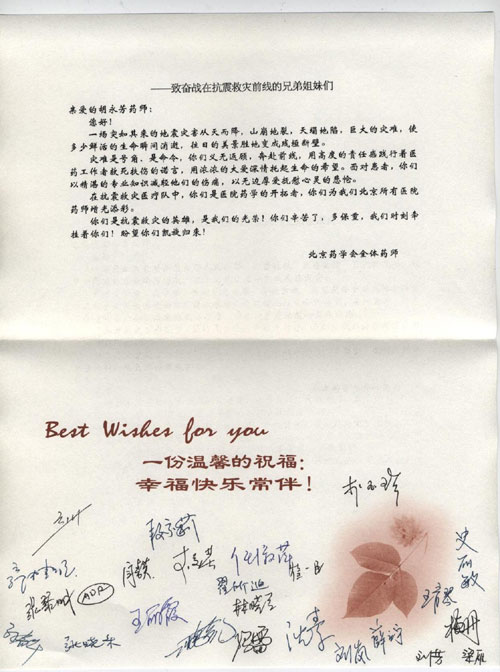 ——致奋战在抗震救灾前线的兄弟姐妹们
亲爱的胡永芳药师：
您好！
一场突如其来的地震灾害从天而降，山崩地裂，天塌地陷，巨大的灾难，使
多少鲜活的生命瞬间消逝，往日的美景胜地变成残桓断壁。
灾难是号角，是命令，你们义无返顾，奔赴前线，用高度的责任感践行着医
药工作者救死扶伤的诺言，用浓浓的大爱深情托起生命的希望。面对患者，你们
以精湛的专业知识减轻他们的伤痛，以无边厚爱抚慰心灵的悲怆。
在抗震救灾医疗队中，你们是医院药学的开拓者，你们为我们北京所有医院
药师增光添彩。
你们是抗震救灾的英雄，是我们的光荣！你们辛苦了，多保重，我们时刻牵
挂着你们！盼望你们凯旋归来！
北京药学会全体药师
Best Wishes for you
一份温馨的祝福：
幸福快乐常伴！
史丽敏
翟所迪
王丽霞
张晓乐
沈素
刘芳
梅丹
梁雁